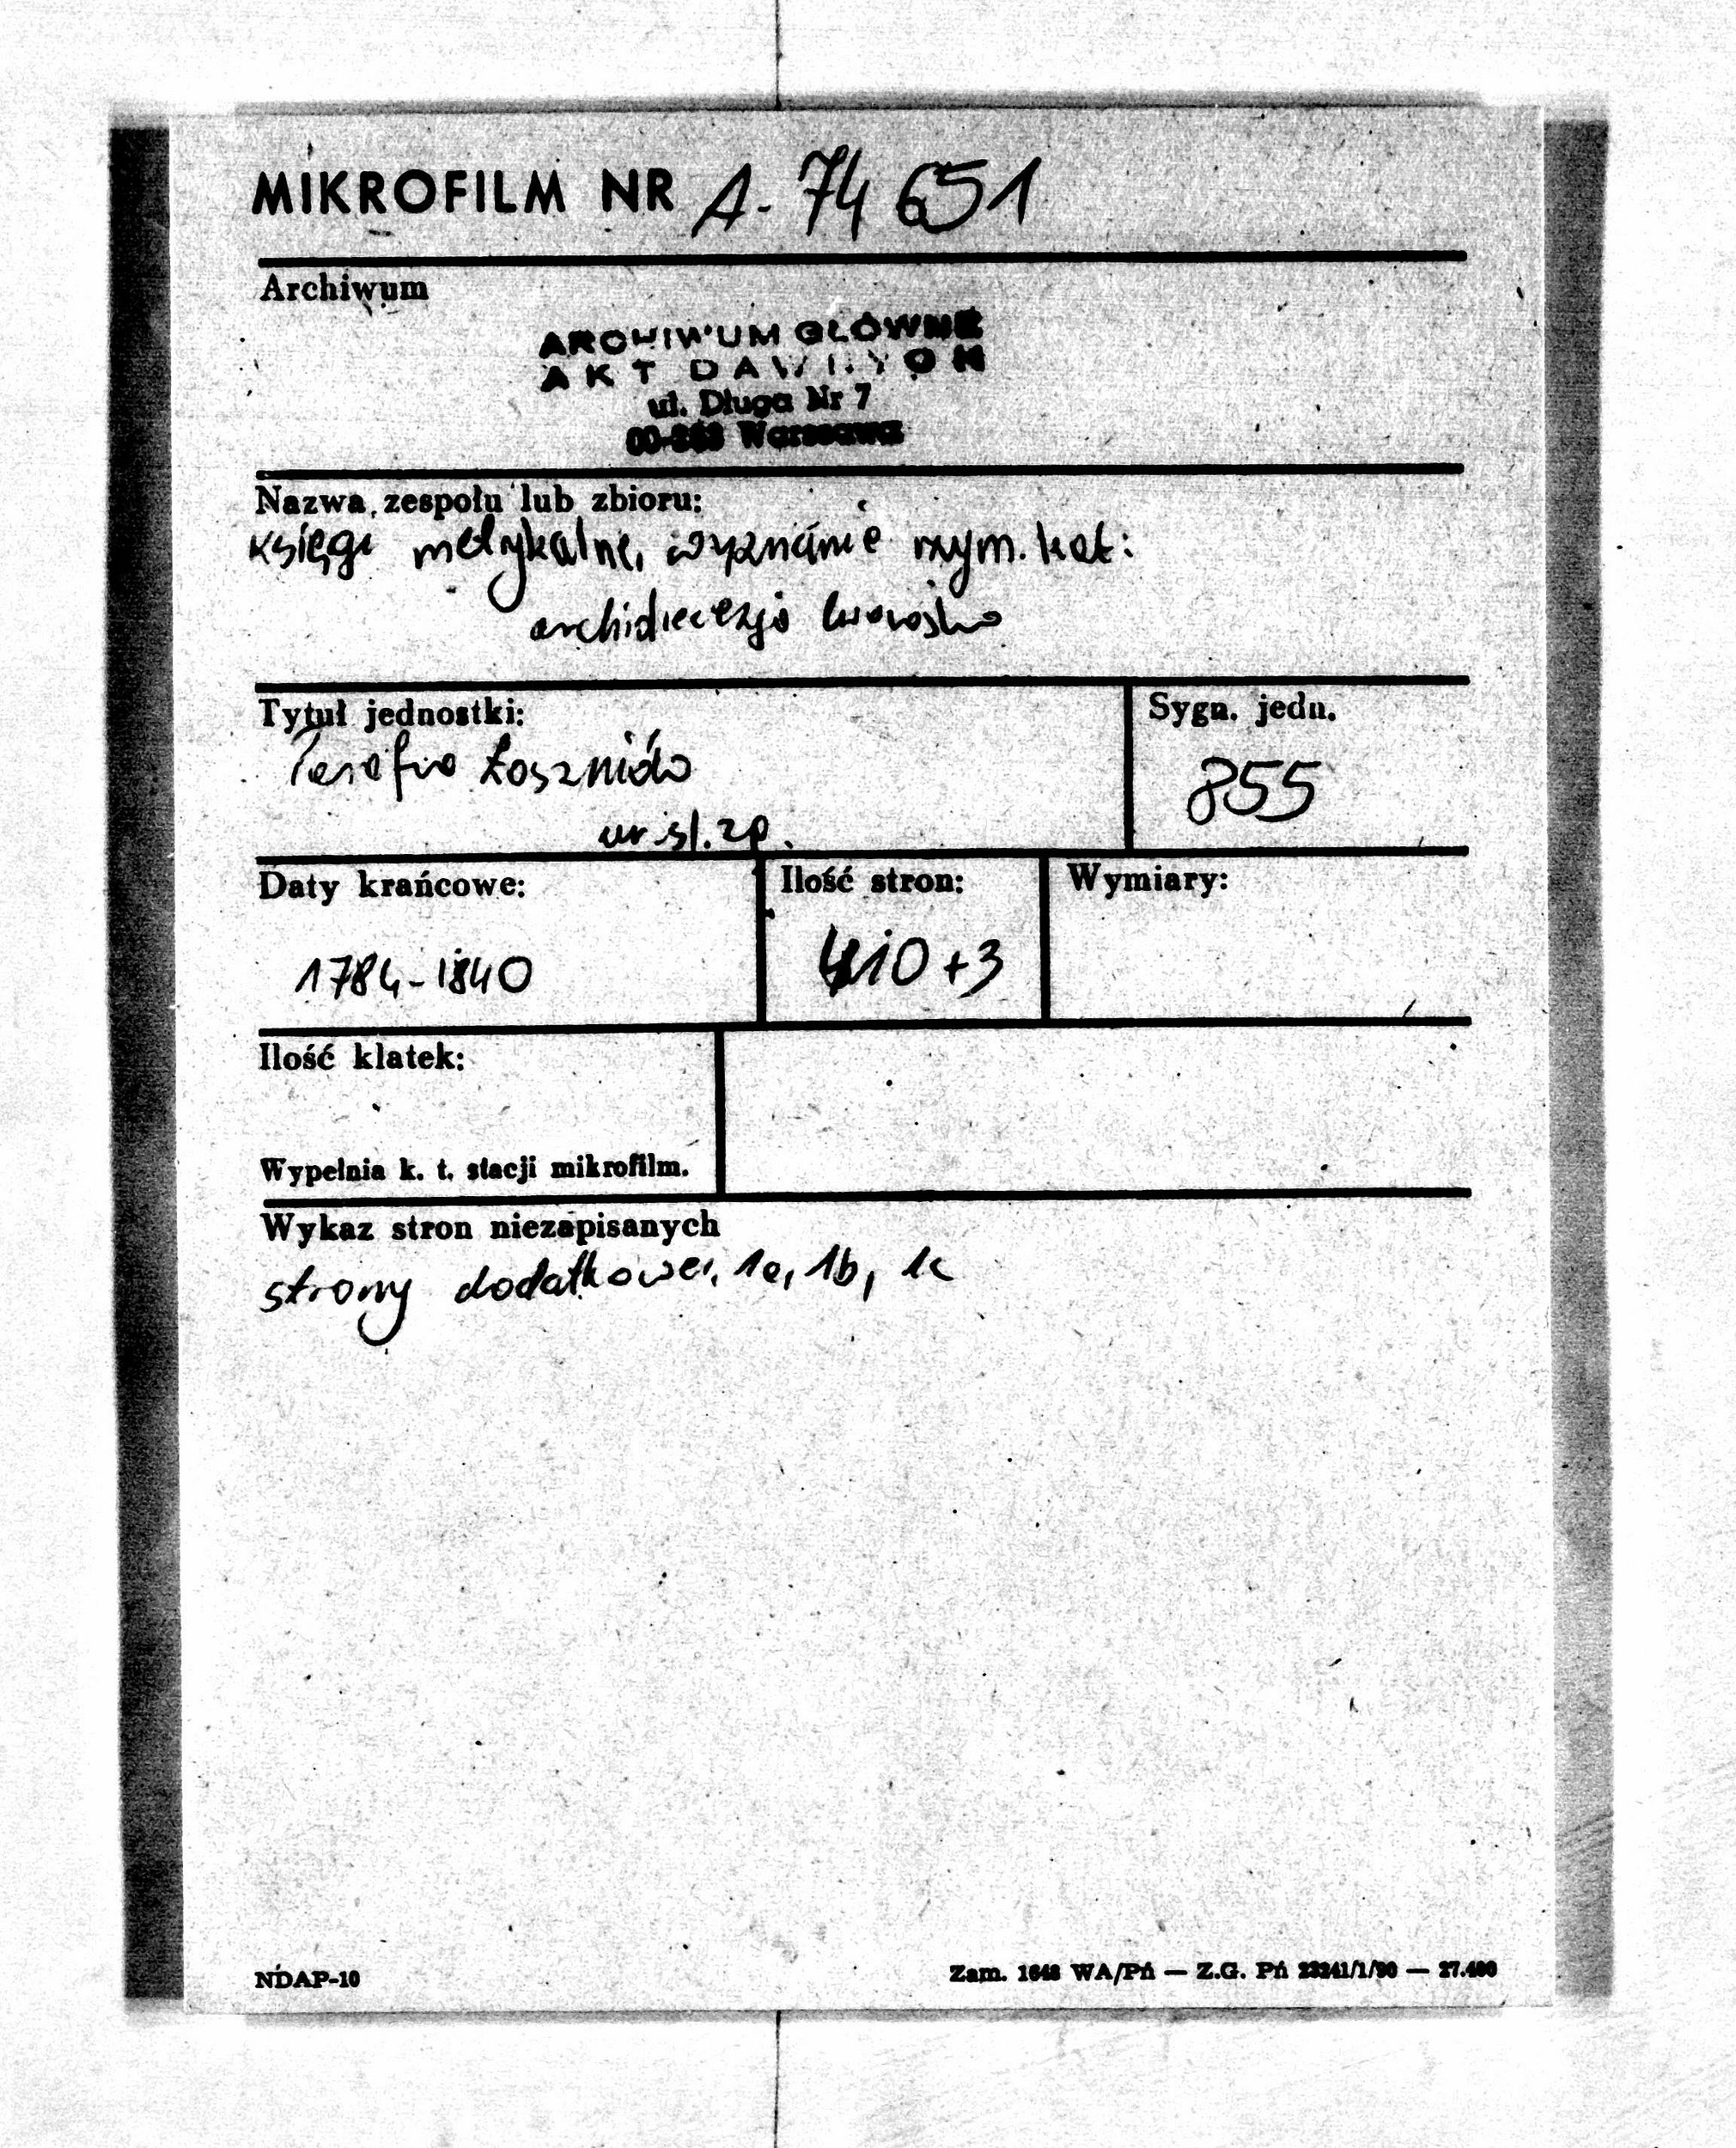 MIKROFILM NR A-74651
Archiwum
ARCHIWUM GŁÓWNE
AKT DAWNYCH
ul. Długa Nr 7
00-263 Warszawa
Nazwa zespołu lub zbioru:
Księgi metrykalne, wyznanie rzym. kat:
archidiecezja lwowska
Tytuł jednostki:
Parafia Łosznióv
ur. śl. zp.
Sygn. jedn.
855
Daty krańcowe:
1784-1840
Ilość stron:
410+3
Wymiary:
Ilość klatek:
Wypełnia k. t. stacji mikrofilm.
Wykaz stron niezapisanych
strony dodatkowe, 1a, 1b, 1c
NDAP-10
Zam. 1648 WA/Pń — Z.G. Pń 23241/1/90 — 27.400